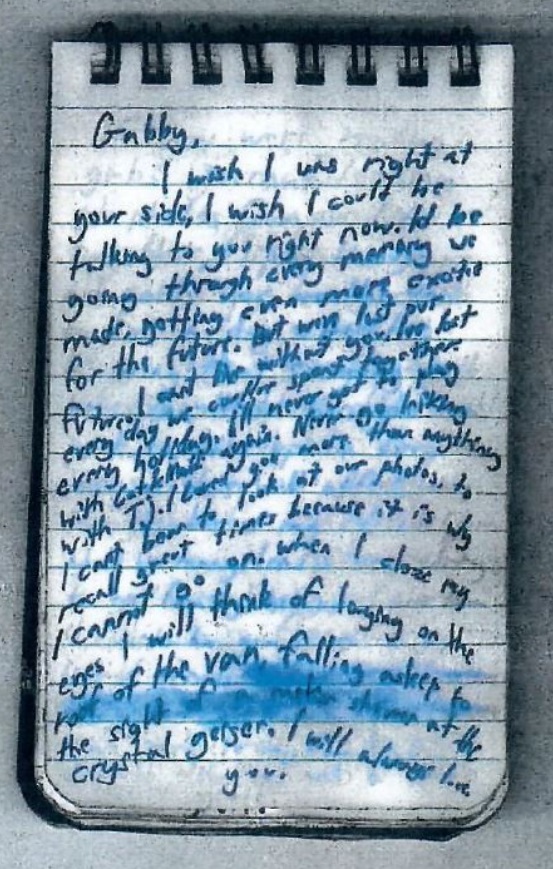 Gabby,
I wish I was right at
your side, I wish I could be
talking to you right now. Id be
going through every memory we
made, getting even more excited
for the future. But we've lost our
future. I cant live without you. Ive lost
every day we could've spent together
every holiday. I'll never get to play
with again. Never go hiking
with TJ. I loved you more than anything
I cant bear to look at our photos, to
recall great times because it is why
I cannot go on. When I close my
eyes I will think of laughing on the
roof of the van, falling asleep to
the sight of at the
crystal geiser. I will always love
you.